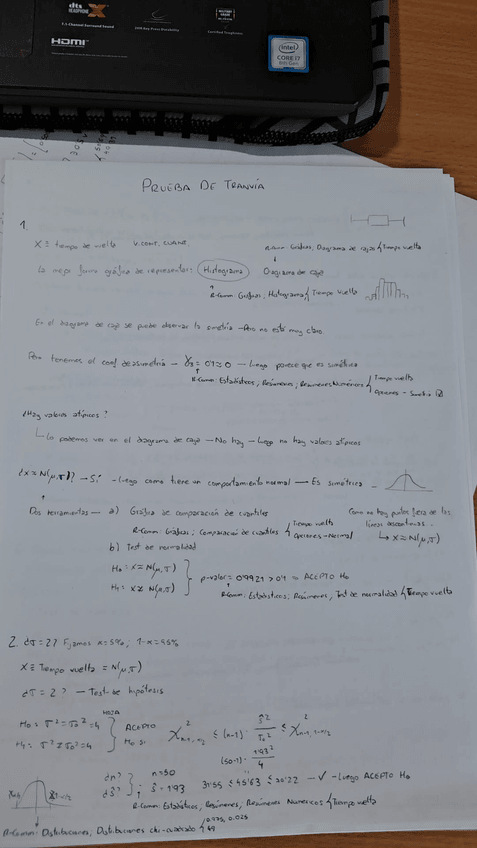 dts
HEADPHONE
X
7.1-Channel Surround Sound
HDMI
intel
CORE i7
8th Gen
PRUEBA DE TRANVÍA
1.
X ≡ tiempo de vuelta V. CONT. CUANT.
R-Comm: Gráficas, Diagrama de cajas { Tiempo vuelta
La mejor forma gráfica de representar: Histograma Diagrama de caja
R-Comm: Gráficas, Histograma { Tiempo vuelta
En el diagrama de caja se puede observar la simetría - Pero no está muy claro
Pero tenemos el coef de asimetría — γ₁ = 0'1 ≈ 0 — Luego parece que es simétrica
R-Comm: Estadísticos, Resúmenes, Resúmenes Numéricos { Tiempo vuelta
Opciones - Simetría
¿Hay valores atípicos?
Lo podemos ver en el diagrama de caja — No hay — Luego no hay valores atípicos
¿X ≈ N(μ,σ)? → Sí - Luego como tiene un comportamiento normal — Es simétrica
Dos herramientas — a) Gráfica de comparación de cuantiles
Como no hay puntos fuera de las líneas discontinuas
R-Comm: Gráficas; Comparación de cuantiles { Tiempo vuelta
Opciones - Normal
↳ X ≈ N(μ,σ)
b) Test de normalidad
H₀ = X ≈ N(μ,σ)
H₁ = X ≉ N(μ,σ)
p-valor = 0'9921 > 0'1 = ACEPTO H₀
R-Comm: Estadísticos; Resúmenes, Test de normalidad { Tiempo vuelta
2. ¿σ = 2? Fijamos α = 5%; 1-α = 95%
X ≡ Tiempo vuelta = N(μ,σ)
¿σ = 2? — Test de hipótesis
HOJA
H₀ = σ² = σ₀² = 4
H₁ = σ² ≠ σ₀² = 4
ACEPTO
H₀ si:
χ²n-1, α/2 ≤ (n-1)· ŝ²/σ₀² ≤ χ²n-1, 1-α/2
(50-1)· 1'93²/4
¿n? n = 50
¿ŝ? ŝ = 1'93
31'55 ≤ 45'63 ≤ 70'22 — ✓ - Luego ACEPTO H₀
R-Comm: Estadísticos, Resúmenes, Resúmenes Numéricos { Tiempo vuelta
R-Comm: Distribuciones, Distribuciones chi-cuadrado { 0.975, 0.025
49